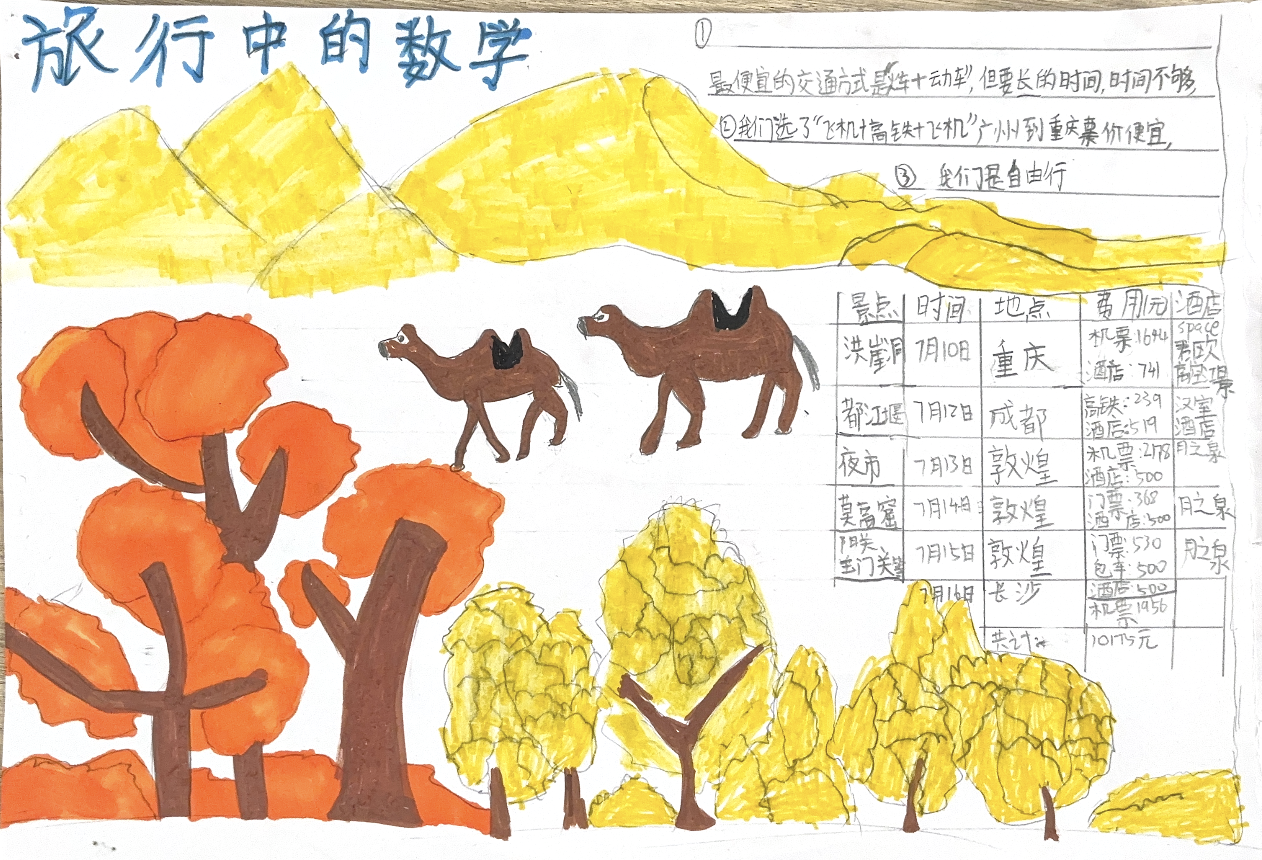 旅行中的数学
①
最便宜的交通方式是"火车+动车",但要长的时间,时间不够,
②我们选了"飞机+高铁+飞机"广州到重庆票价便宜,
③ 我们是自由行
景点 时间 地点 费用/元 酒店
洪崖洞 7月10日 重庆 机票:1694 酒店:741 space 高空
都江堰 7月12日 成都 高铁:239 酒店:519 汉室酒店
夜市 7月13日 敦煌 机票:2178 酒店:500 月之泉
莫高窟 7月14日 敦煌 门票:368 酒店:500 月之泉
阳关、玉门关 7月15日 敦煌 门票:530 包车:500 月之泉
7月16日 长沙 酒店:500 机票1956
共计 10175元